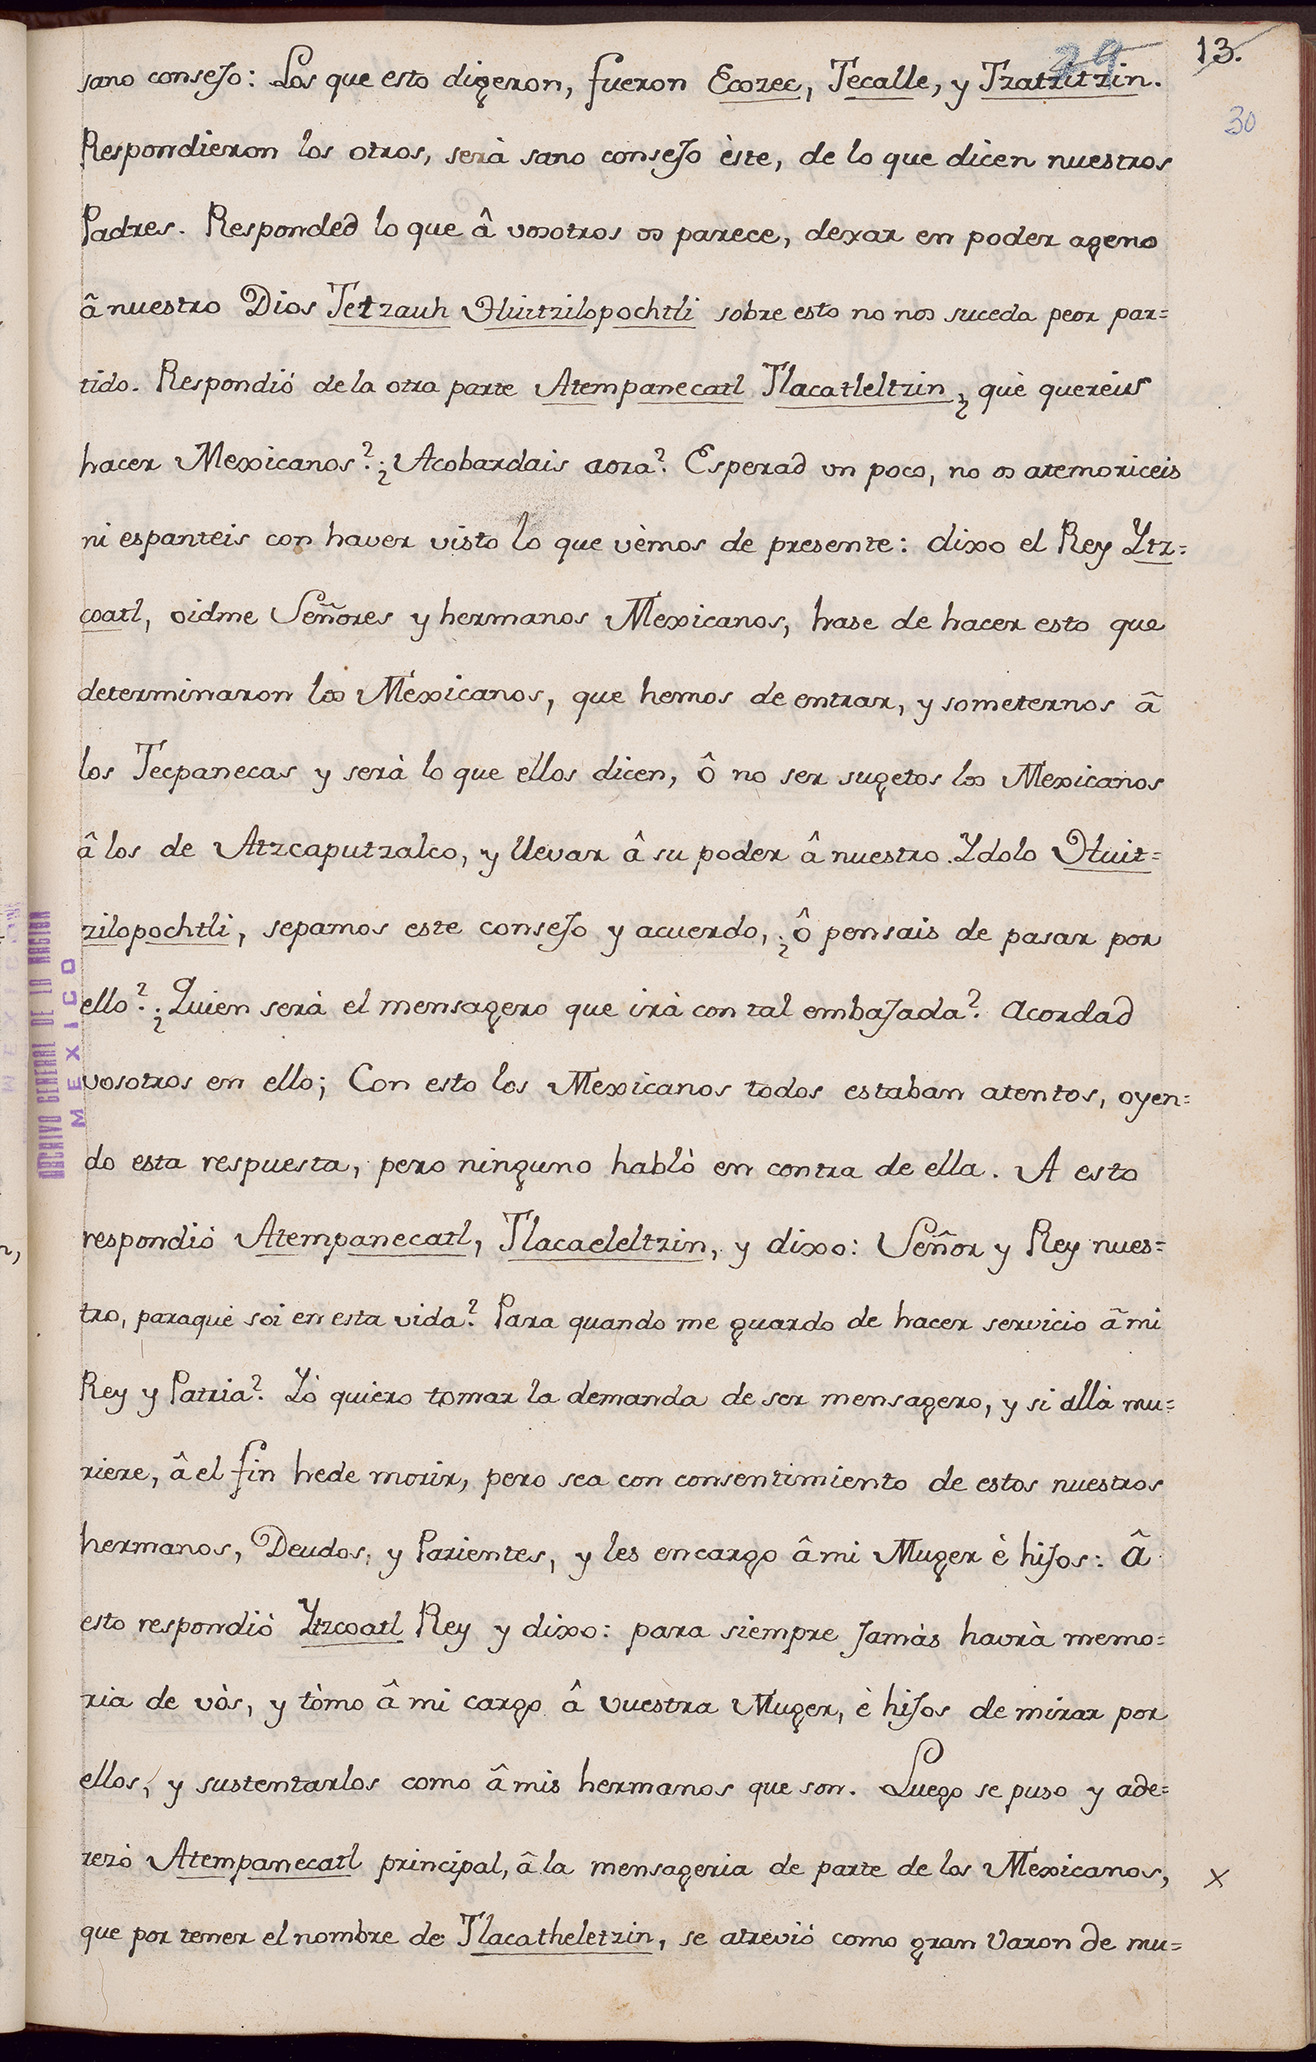 29 13.
30
sano consejo: Los que esto digeron, fueron Ecozec, Tecalle, y Tzatzitzin.
Respondieron los otros, serà sano consejo èste, de lo que dicen nuestros
Padres. Responded lo que â vosotros os parece, dexar en poder ageno
â nuestro Dios Tetzauh Huitzilopochtli sobre esto no nos suceda peor par=
tido. Respondió de la otra parte Atempanecatl Tlacatleltzin, ¿ què quereis
hacer Mexicanos? ¿ Acobardais aora? Esperad un poco, no os atemoriceis
ni espanteis con haver visto lo que vèmos de presente: dixo el Rey Ytz=
coatl, oidme Señores y hermanos Mexicanos, hase de hacer esto que
determinaron los Mexicanos, que hemos de entrar, y someternos â
los Tecpanecas y serà lo que ellos dicen, ô no ser sugetos los Mexicanos
â los de Atzcaputzalco, y llevar â su poder â nuestro Ydolo Huit=
zilopochtli, sepamos este consejo y acuerdo, ¿ ô pensais de pasar por
ello? ¿ Quien serà el mensagero que irà con tal embajada? Acordad
vosotros en ello; Con esto los Mexicanos todos estaban atentos, oyen=
do esta respuesta, pero ninguno hablò en contra de ella. A esto
respondió Atempanecatl, Tlacaeleltzin, y dixo: Señor y Rey nues=
tro, paraquè soi en esta vida? Para quando me guardo de hacer servicio â mi
Rey y Patria? Yò quiero tomar la demanda de ser mensagero, y si allà mu=
riere, â el fin hede morir, pero sea con consentimiento de estos nuestros
hermanos, Deudos, y Parientes, y les encargo â mi Muger è hijos: â
esto respondiò Ytzcoatl Rey y dixo: para siempre jamàs havrà memo=
ria de vòs, y tòmo â mi cargo â vuestra Muger, è hijos de mirar por
ellos, y sustentarlos como â mis hermanos que son. Luego se puso y ade=
rezò Atempanecatl principal, â la mensageria de parte de los Mexicanos, x
que por tener el nombre de Tlacatheletzin, se atrevió como gran Varon de mu=
ARCHIVO GENERAL DE LA NACION
MEXICO